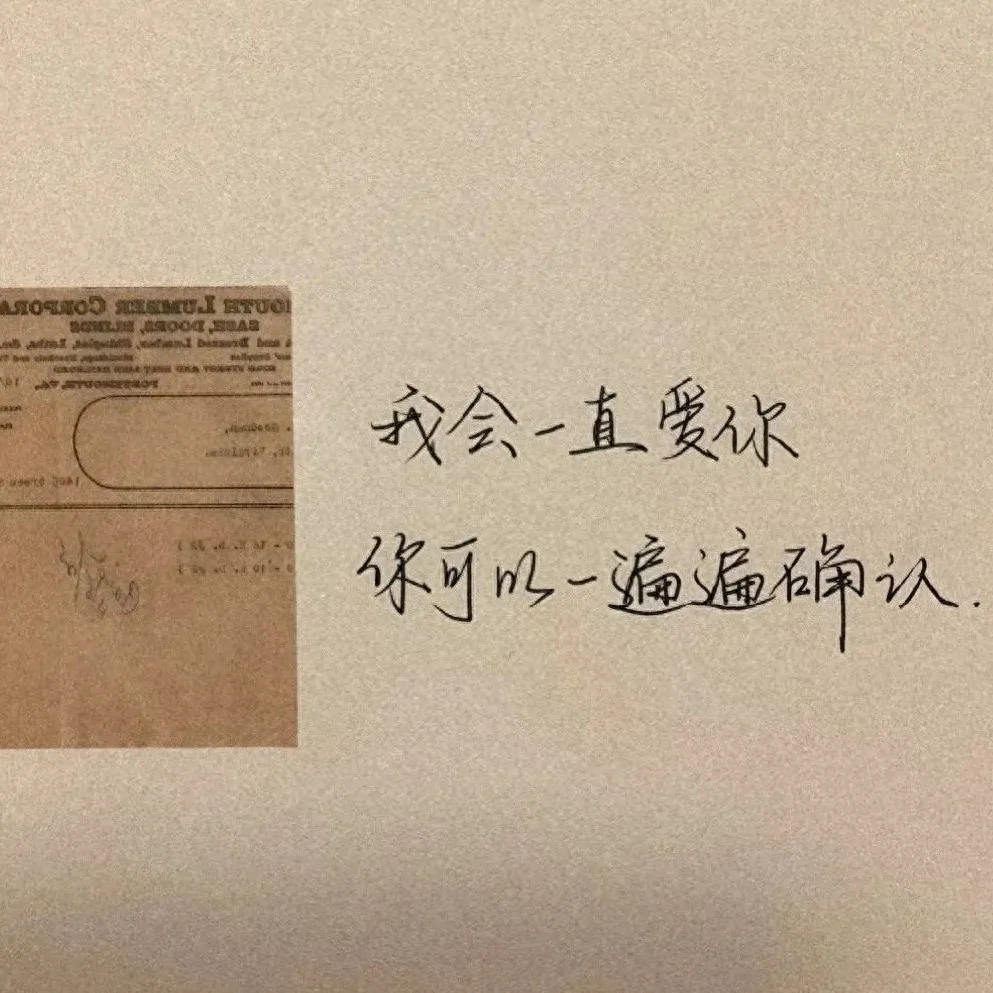 OUTH LUMBER CORPORA
SASH, DOORS, BLINDS
and Dressed Lumber, Shingles, Laths, &c.
ROAD STREET AND BELT LINE RAILROAD
PORTSMOUTH, VA.
我会一直爱你
你可以一遍遍确认.